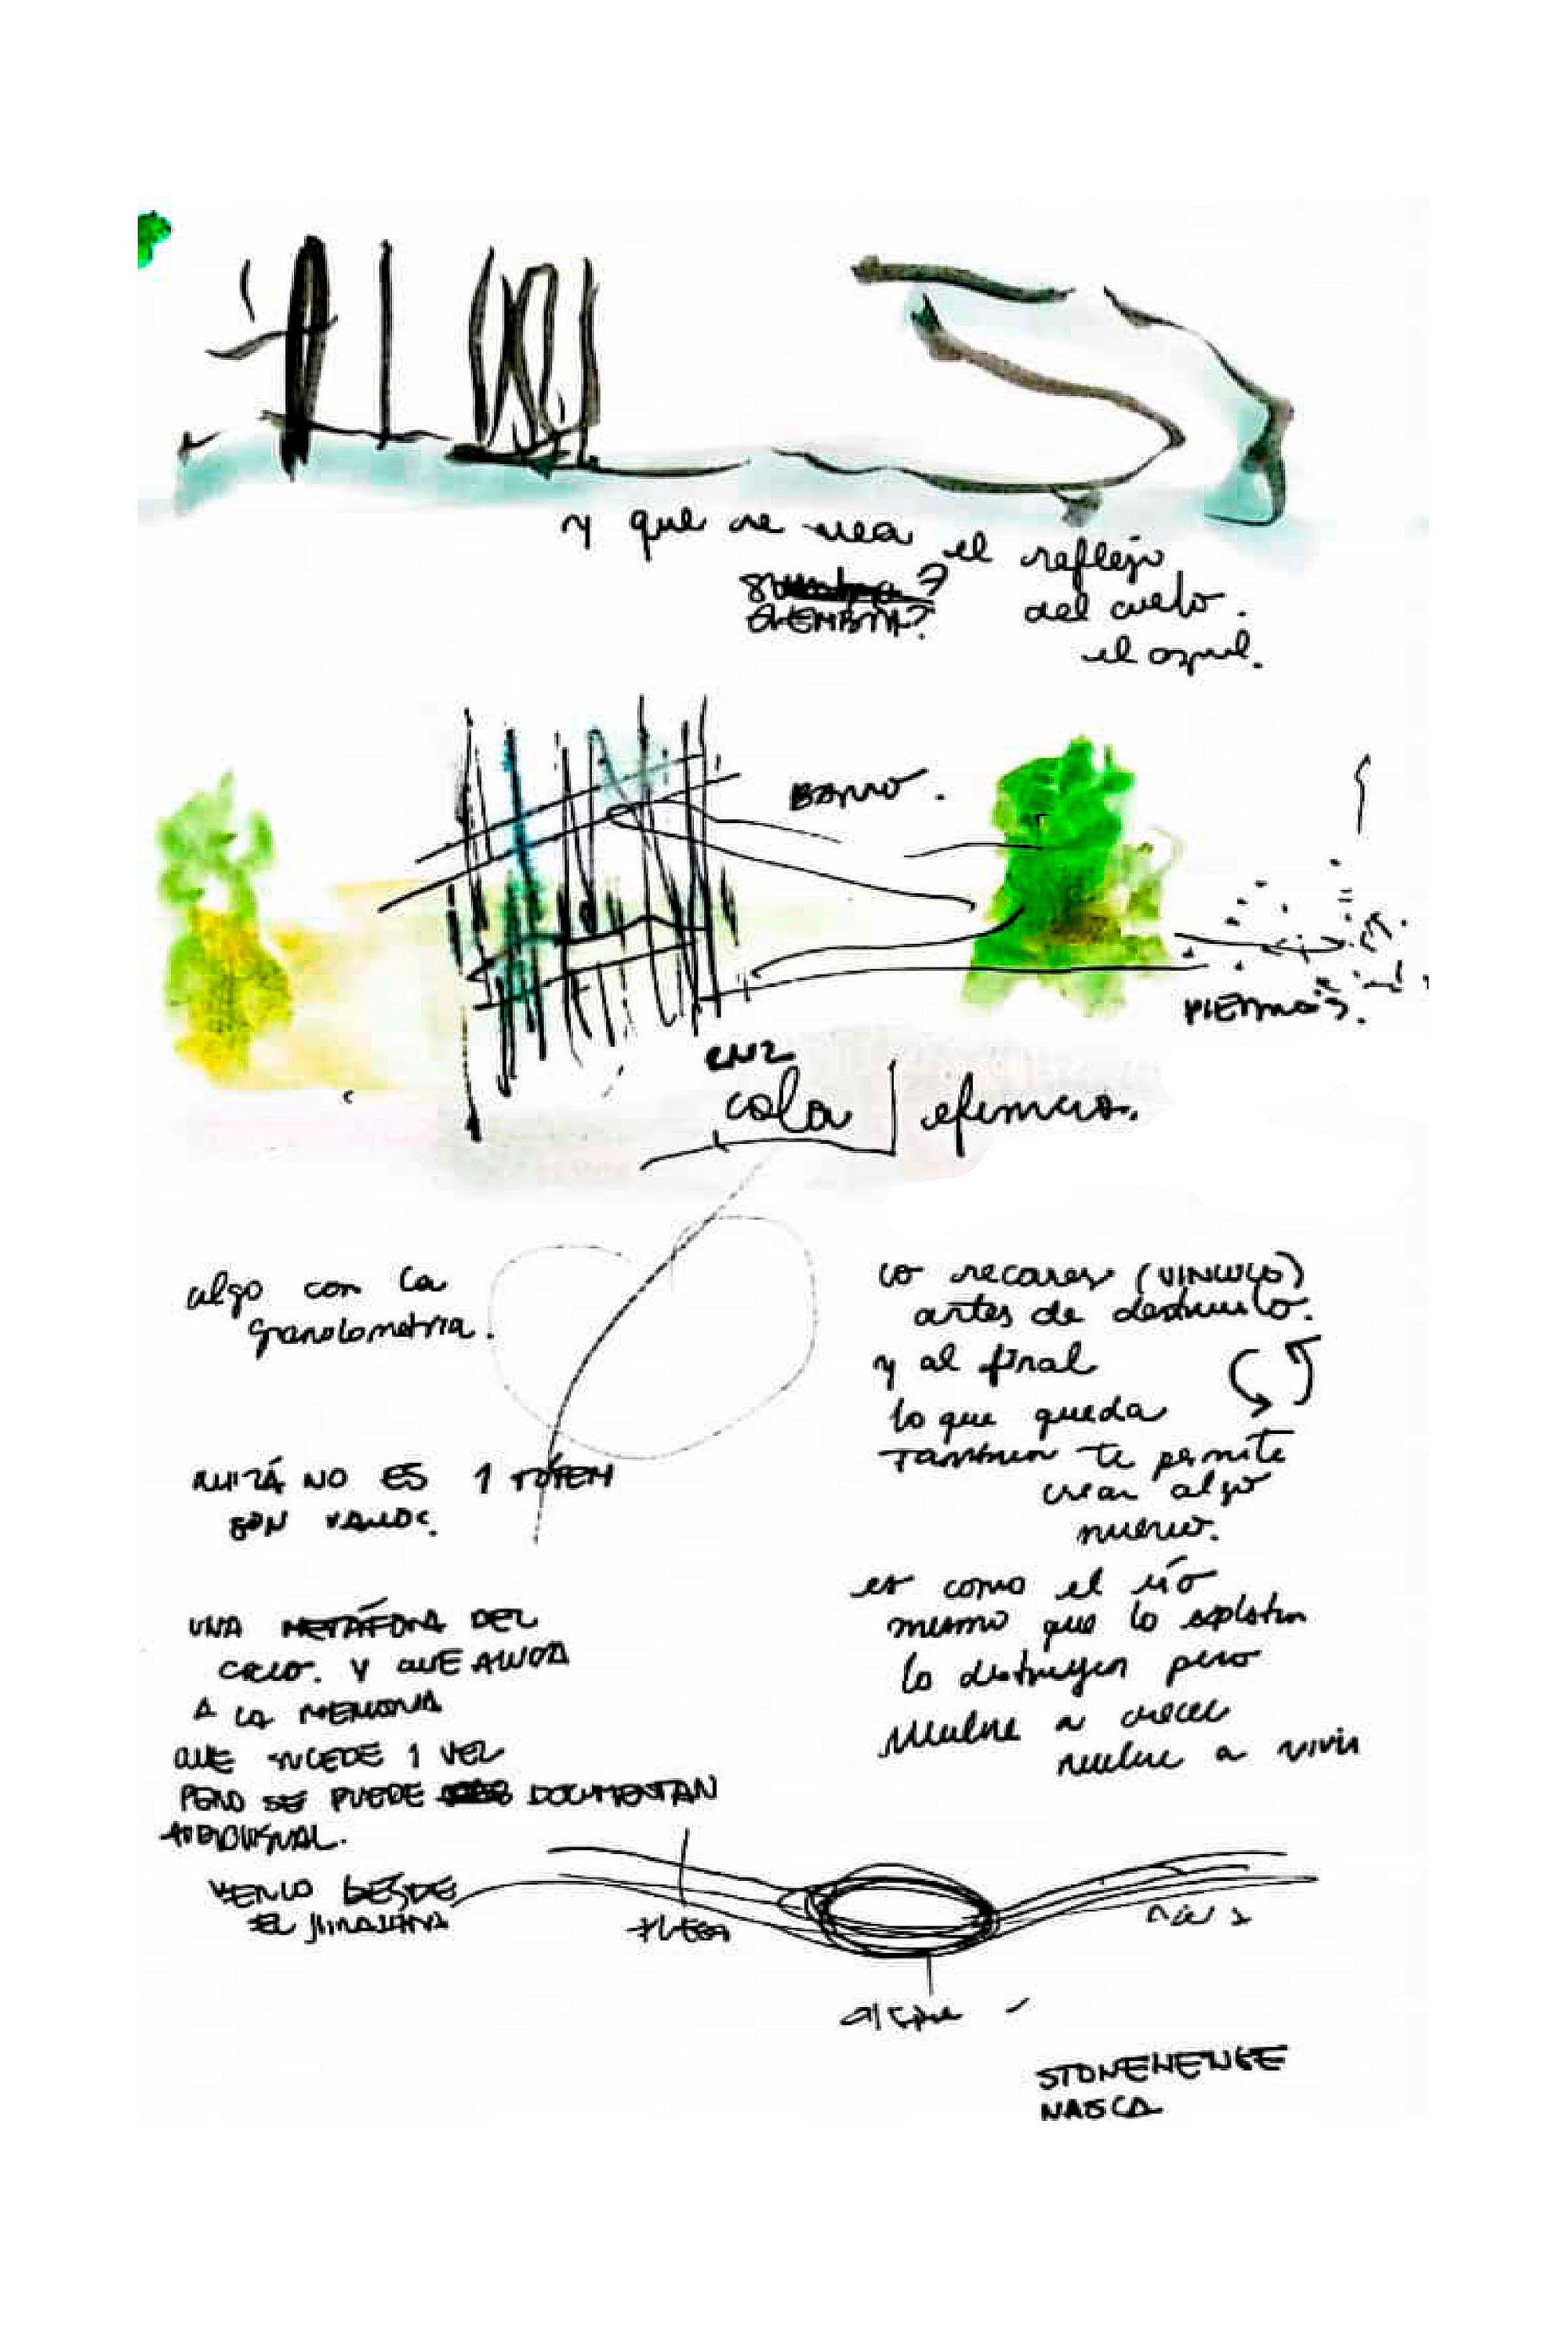 y que se vea el reflejo
del cielo.
el azul.
SIEMBRA?
BARRO.
PIEDRAS.
cola efímera.
algo con la
granolometria.
QUIZÁ NO ES 1 TÓTEM
SON VARIOS.
UNA METÁFORA DEL
CICLO. Y QUE ALUDA
A LA MEMORIA
QUE SUCEDE 1 VEZ
PERO SE PUEDE DOCUMENTAR
AUDIOVISUAL.
VERLO DESDE
EL MIRADOR
lo recorres (VINCULO)
antes de destruirlo.
y al final
lo que queda
también te permite
crear algo
nuevo.
es como el río
mismo que lo explotan
lo destruyen pero
vuelve a crecer
vuelve a vivir
STONEHENGE
NASCA